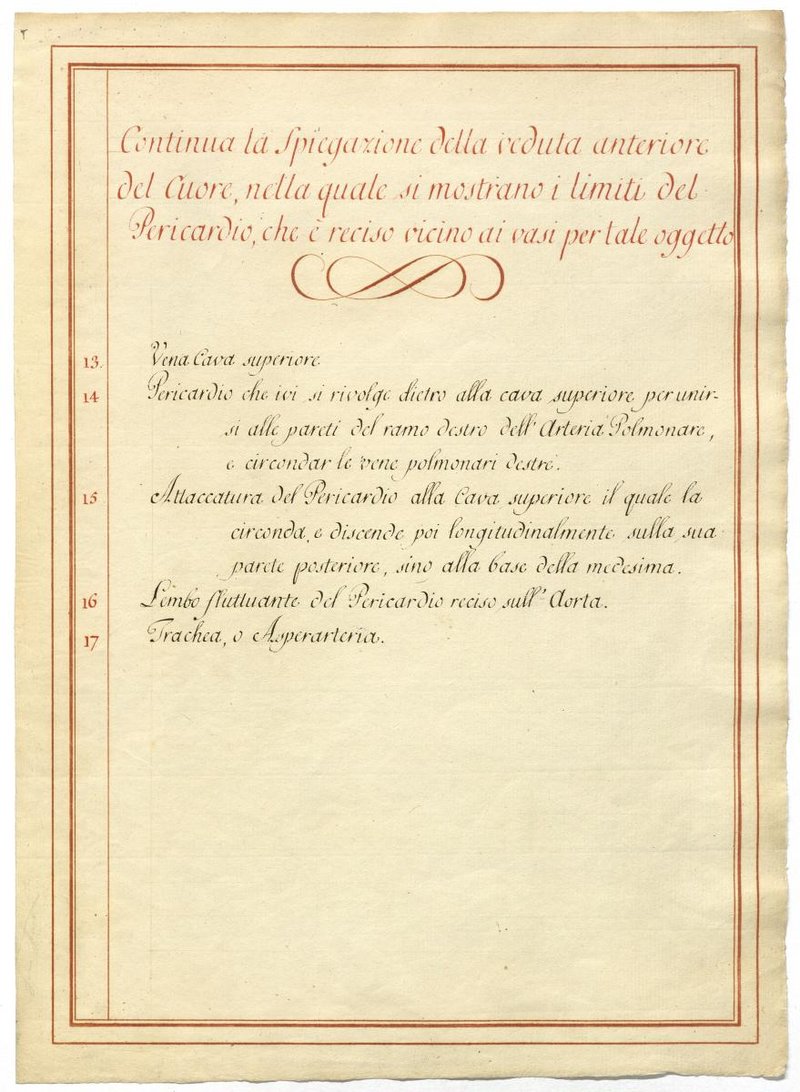 Continua la Spiegazione della veduta anteriore
del Cuore, nella quale si mostrano i limiti del
Pericardio, che è reciso vicino ai vasi per tale oggetto
13. Vena Cava superiore
14 Pericardio che ivi si rivolge dietro alla cava superiore per unir-
si alle pareti del ramo destro dell'Arteria Polmonare,
e circondar le vene polmonari destre.
15 Attaccatura del Pericardio alla Cava superiore il quale la
circonda, e discende poi longitudinalmente sulla sua
parete posteriore, sino alla base della medesima.
16 Lembo fluttuante del Pericardio reciso sull'Aorta.
17 Trachea, o Asperarteria.